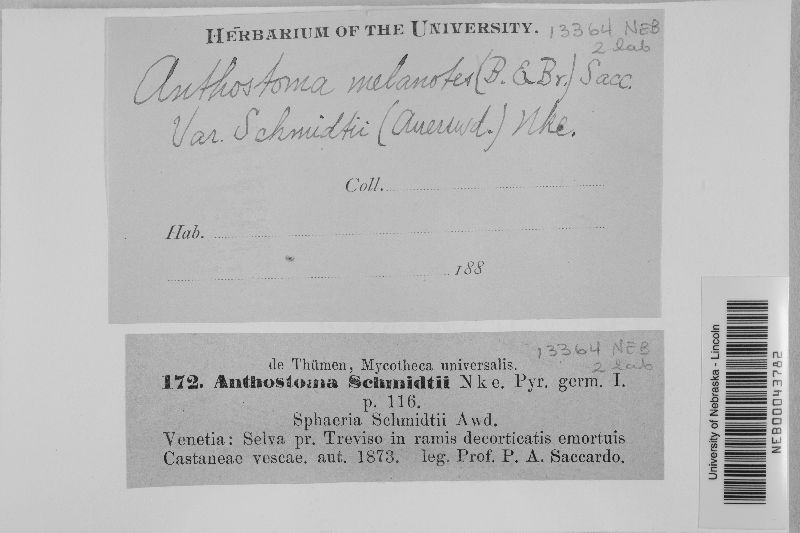 HERBARIUM OF THE UNIVERSITY. 13364 NEB
2 lab
Anthostoma melanotes (B. & Br.) Sacc.
Var. Schmidtii (Auerswd.) Nke.
Coll.
Hab.
188
13364 NEB
2 lab
de Thümen, Mycotheca universalis.
172. Anthostoma Schmidtii Nke. Pyr. germ. I.
p. 116.
Sphaeria Schmidtii Awd.
Venetia: Selva pr. Treviso in ramis decorticatis emortuis
Castaneae vescae. aut. 1873. leg. Prof. P. A. Saccardo.
University of Nebraska - Lincoln
NEB00043782